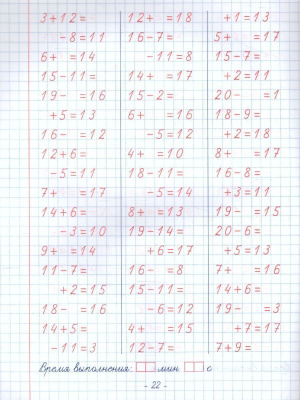 3+12=
-8=11
6+ =14
15-11=
19- =16
+5=13
16- =12
12+6=
-5=11
7+ =17
14+6=
-3=10
9+ =14
11-7=
+2=15
18- =16
14+5=
-11=3
12+ =18
16-7=
-11=8
14+ =17
15-2=
6+ =16
-5=12
4+ =10
18-11=
-5=14
8+ =13
19-14=
+6=17
16- =8
15-11=
-6=12
4+ =15
12-7=
+1=13
5+ =17
15-7=
+2=11
20- =1
18-9=
+2=18
8+ =17
16-8=
+3=11
19- =15
20-6=
+5=13
7+ =16
14+6=
19- =3
+7=17
7+9=
Время выполнения: мин с
- 22 -